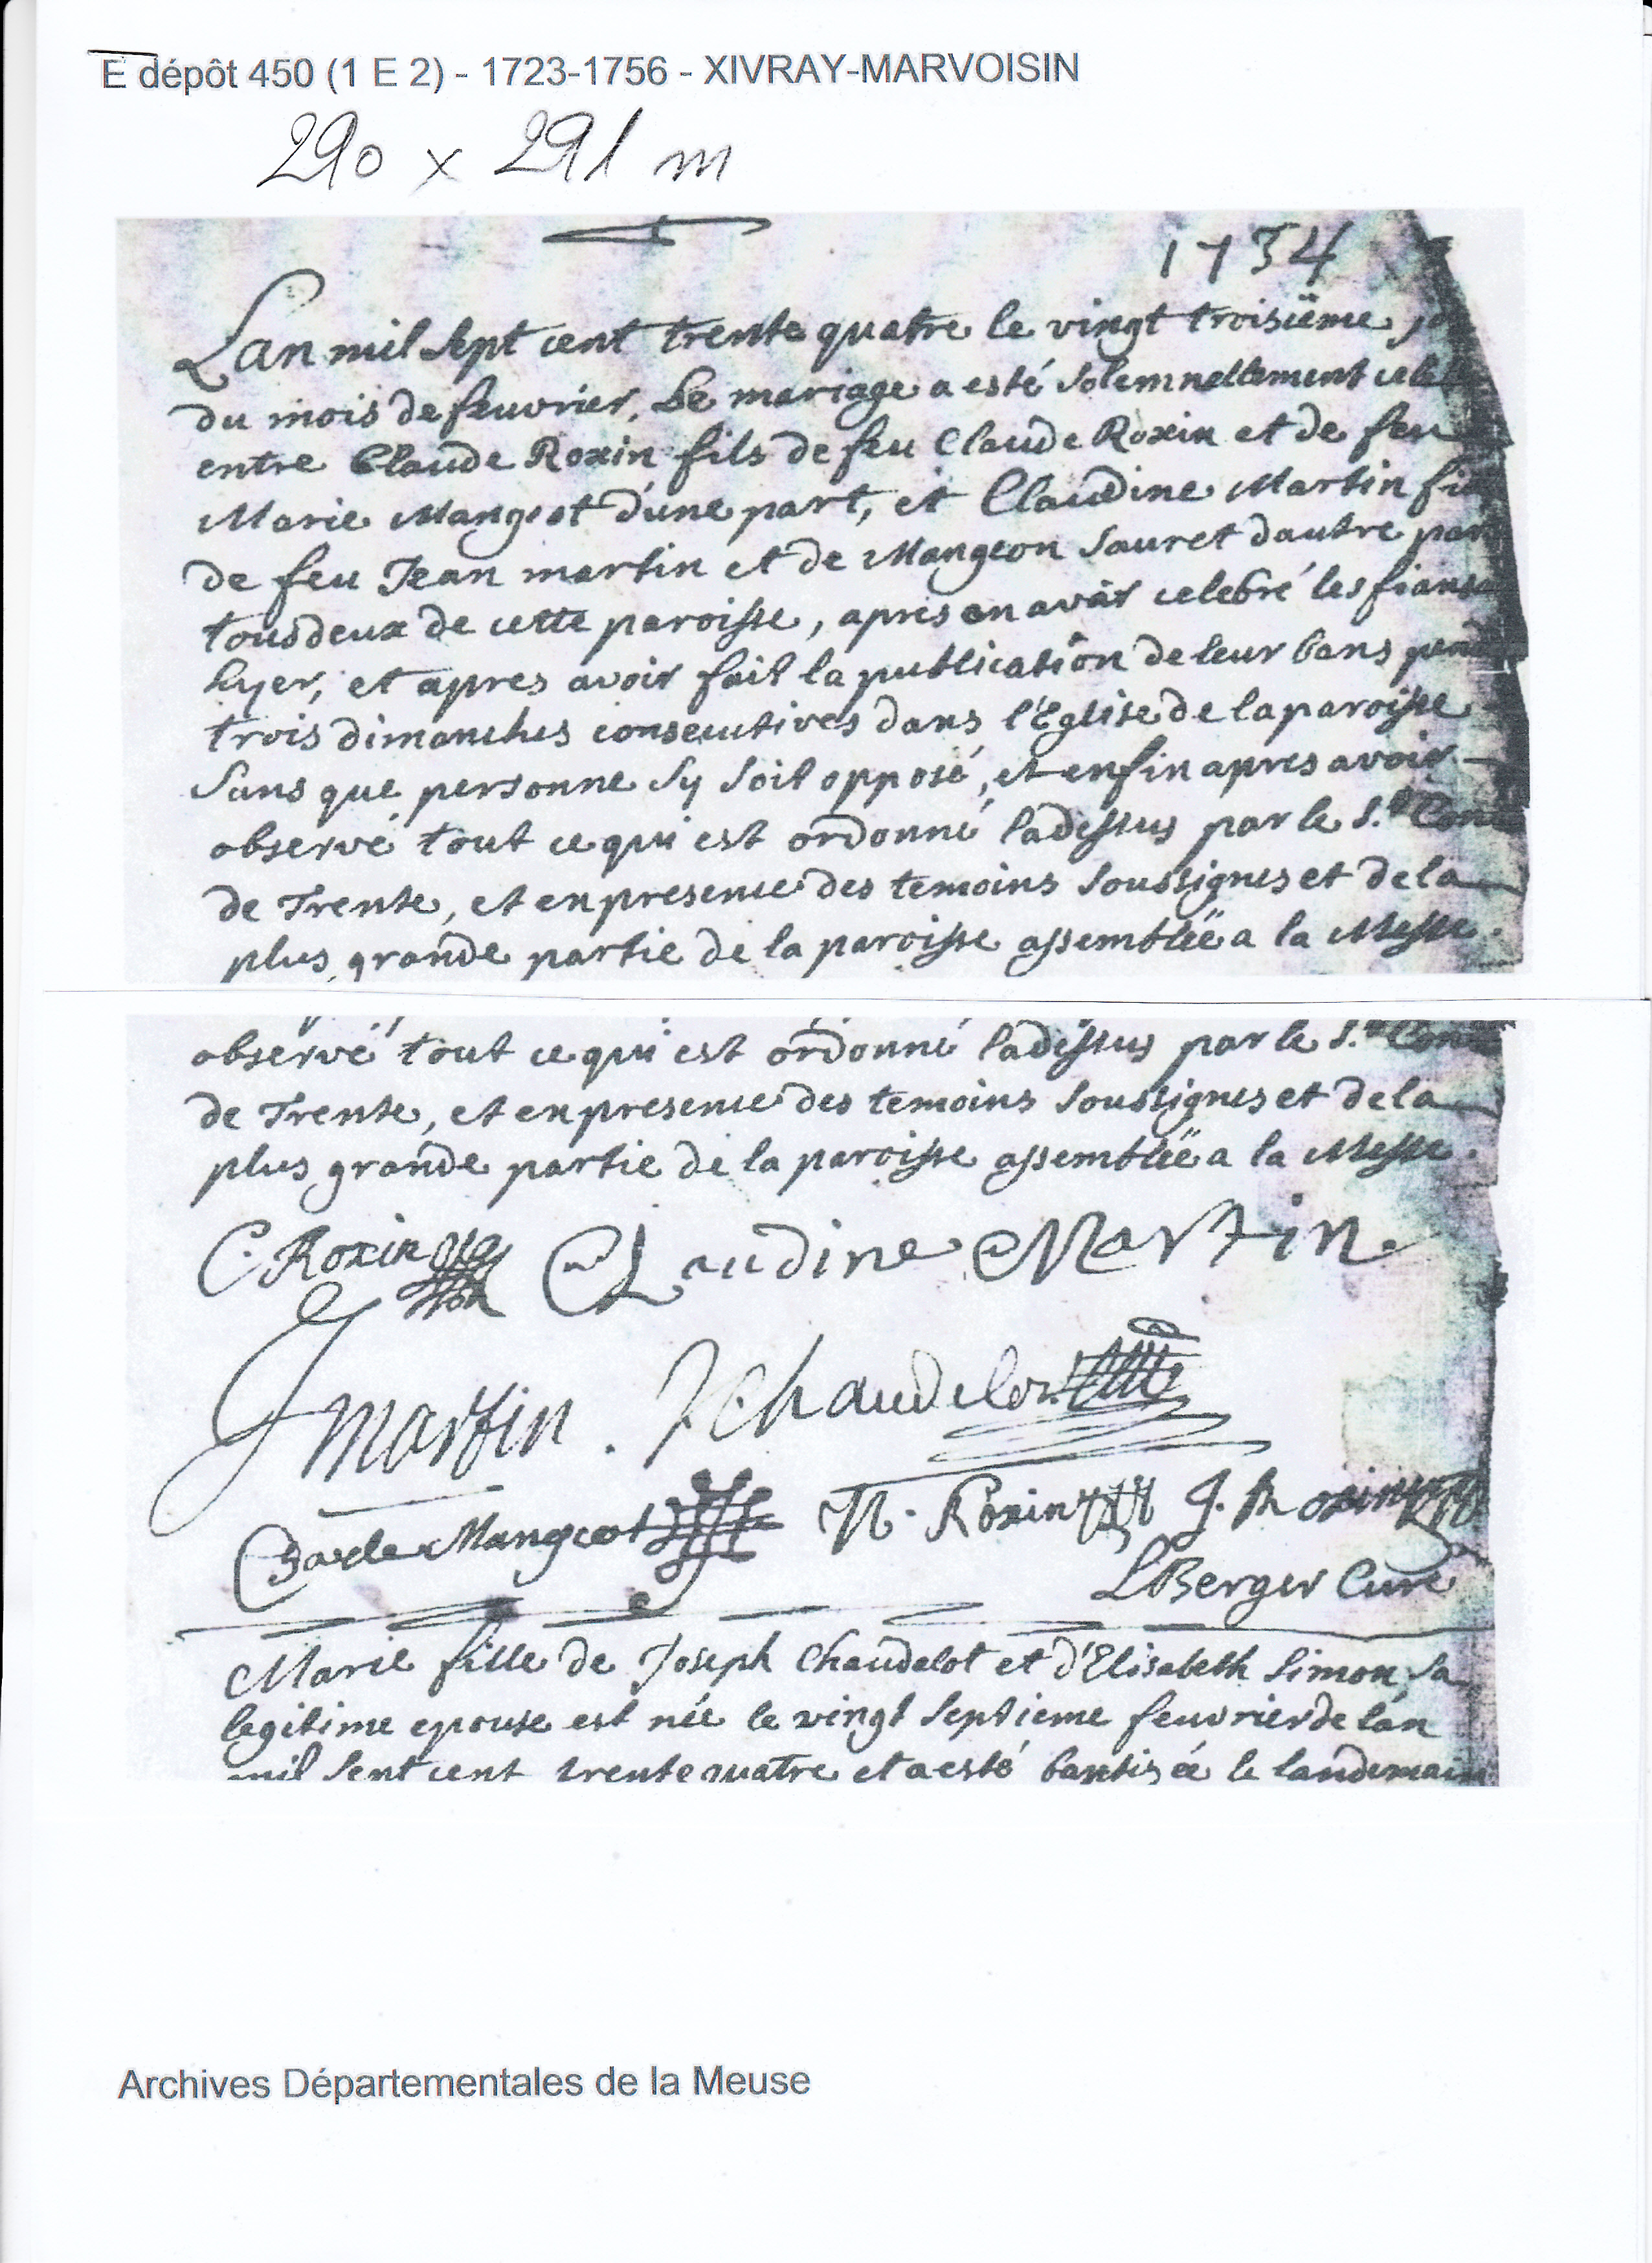 E dépôt 450 (1 E 2) - 1723-1756 - XIVRAY-MARVOISIN
290 x 291 m
1734
Lan mil sept cent trente quatre le vingt troisiëme
du mois de feuvrier, Le mariage a esté solemnellement
entre Claude Roxin fils de feu Claude Roxin et de feu
Marie Mangeot d'une part, et Claudine Martin
de feu Jean martin et de Mangeon Sauret dautre part
tous deux de cette paroisse, apres en avoir celebré les
hyer, et apres avoir fait la publication de leur bans
trois dimanches consecutives dans l'Eglise de la paroisse
sans que personne sy soit opposé, et enfin apres avoir
observé tout ce qui est ordonné ladessus par le S.t
de Trente, et en presence des temoins soussignes et de la
plus grande partie de la paroisse assembléë a la Messe.
observé tout ce qui est ordonné ladessus par le S.t
de Trente, et en presence des temoins soussignes et de la
plus grande partie de la paroisse assembléë a la Messe.
C. Roxin Claudine Martin.
J martin. J Chaudelot
Mangeot N. Roxin J. Roxin
L Berger Curé
Marie fille de Joseph Chaudelot et d'Elisabeth Simon sa
legitime epouse est née le vingt septieme feuvrier de lan
mil sent cent trente quatre et a esté baptisée le landemain
Archives Départementales de la Meuse